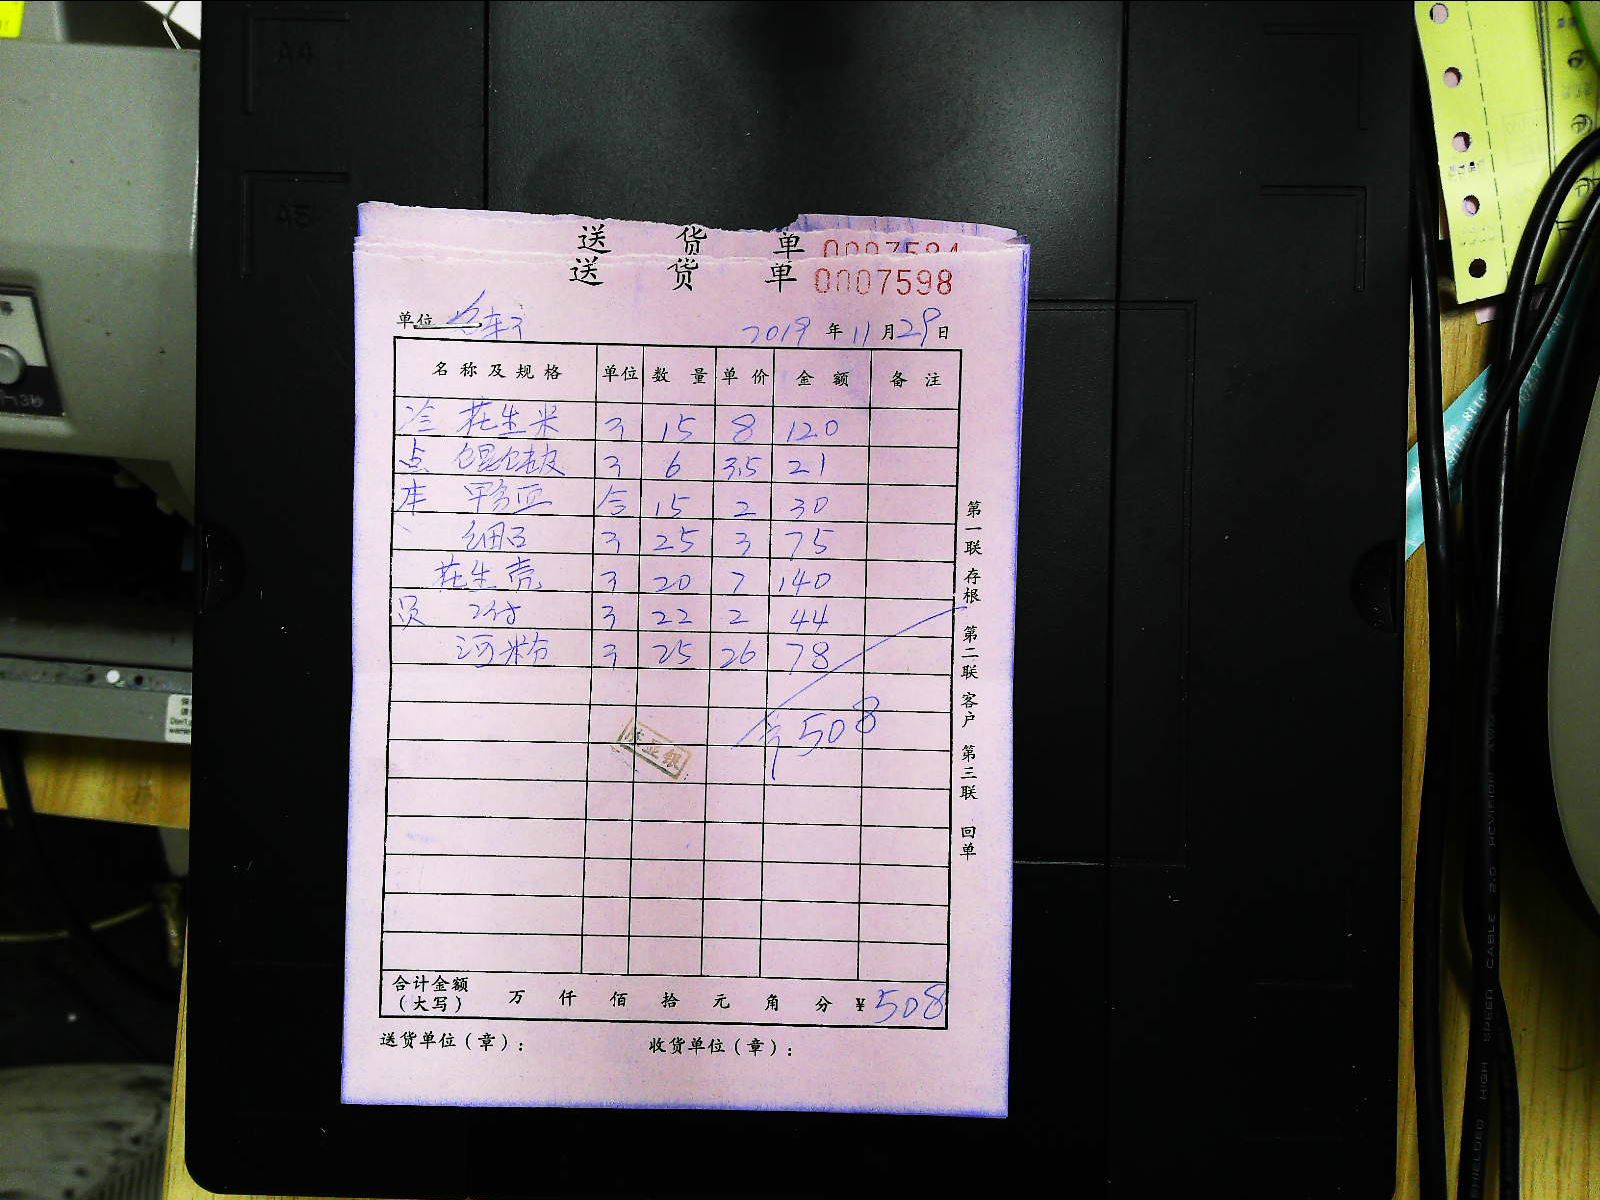 A4
A5
送 货 单 0007584
送 货 单 0007598
单位
2019 年 11 月 29 日
名称及规格 单位 数量 单价 金额 备注
冷 花生米 3 15 8 120
点 3 6 3.5 21
库 15 2 30
3 25 3 75
花生壳 3 20 7 140
员 3 22 2 44
河粉 3 25 26 78
508
合计金额 万 仟 佰 拾 元 角 分 ¥508
(大写)
送货单位(章): 收货单位(章):
第一联 存根 第二联 客户 第三联 回单